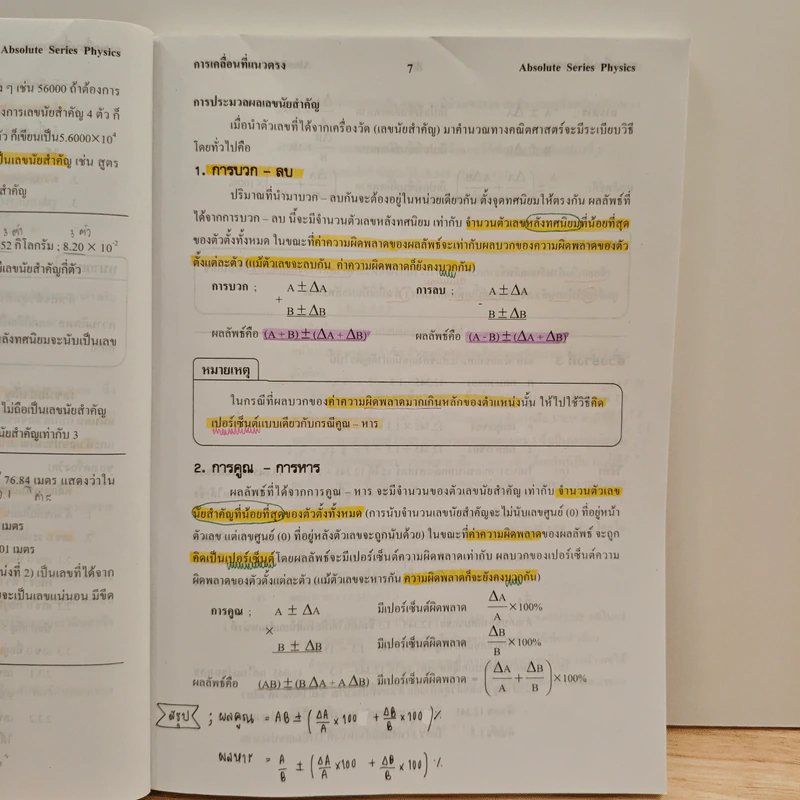 Absolute Series Physics
ๆ เช่น 56000 ถ้าต้องการ
งการเลขนัยสำคัญ 4 ตัว ก็
ัว ก็เขียนเป็น5.6000×10⁴
ป็นเลขนัยสำคัญ เช่น สูตร
สำคัญ
3 ตัว 3 ตัว
52 กิโลกรัม ; 8.20 × 10⁻²
มีเลขนัยสำคัญกี่ตัว
หลังทศนิยมจะนับเป็นเลข
ไม่ถือเป็นเลขนัยสำคัญ
นัยสำคัญเท่ากับ 3
76.84 เมตร แสดงว่าใน
เมตร
01 เมตร
น่งที่ 2) เป็นเลขที่ได้จาก
จะเป็นเลขแน่นอน มีขีด
การเคลื่อนที่แนวตรง 7 Absolute Series Physics
การประมวลผลเลขนัยสำคัญ
เมื่อนำตัวเลขที่ได้จากเครื่องวัด (เลขนัยสำคัญ) มาคำนวณทางคณิตศาสตร์จะมีระเบียบวิธี
โดยทั่วไปคือ
1. การบวก – ลบ
ปริมาณที่นำมาบวก – ลบกันจะต้องอยู่ในหน่วยเดียวกัน ตั้งจุดทศนิยมให้ตรงกัน ผลลัพธ์ที่
ได้จากการบวก – ลบ นี้จะมีจำนวนตัวเลขหลังทศนิยม เท่ากับ จำนวนตัวเลขหลังทศนิยมที่น้อยที่สุด
ของตัวตั้งทั้งหมด ในขณะที่ค่าความผิดพลาดของผลลัพธ์จะเท่ากับผลบวกของความผิดพลาดของตัว
ตั้งแต่ละตัว (แม้ตัวเลขจะลบกัน ค่าความผิดพลาดก็ยังคงบวกกัน)
การบวก ; A ± ΔA การลบ : A ± ΔA
+ -
B ± ΔB B ± ΔB
ผลลัพธ์คือ (A + B) ± (ΔA + ΔB) ผลลัพธ์คือ (A - B) ± (ΔA + ΔB)
หมายเหตุ
ในกรณีที่ผลบวกของค่าความผิดพลาดมากเกินหลักของตำแหน่งนั้น ให้ไปใช้วิธีคิด
เปอร์เซ็นต์แบบเดียวกับกรณีคูณ – หาร
2. การคูณ – การหาร
ผลลัพธ์ที่ได้จากการคูณ – หาร จะมีจำนวนของตัวเลขนัยสำคัญ เท่ากับ จำนวนตัวเลข
นัยสำคัญที่น้อยที่สุดของตัวตั้งทั้งหมด (การนับจำนวนเลขนัยสำคัญจะไม่นับเลขศูนย์ (0) ที่อยู่หน้า
ตัวเลข แต่เลขศูนย์ (0) ที่อยู่หลังตัวเลขจะถูกนับด้วย) ในขณะที่ค่าความผิดพลาดของผลลัพธ์ จะถูก
คิดเป็นเปอร์เซ็นต์ โดยผลลัพธ์จะมีเปอร์เซ็นต์ความผิดพลาดเท่ากับ ผลบวกของเปอร์เซ็นต์ความ
ผิดพลาดของตัวตั้งแต่ละตัว (แม้ตัวเลขจะหารกัน ความผิดพลาดก็จะยังคงบวกกัน)
การคูณ ; A ± ΔA มีเปอร์เซ็นต์ผิดพลาด ΔA/A ×100%
×
B ± ΔB มีเปอร์เซ็นต์ผิดพลาด ΔB/B ×100%
ผลลัพธ์คือ (AB) ± (B ΔA + A ΔB) มีเปอร์เซ็นต์ผิดพลาด = (ΔA/A + ΔB/B) ×100%
สรุป ; ผลคูณ = AB ± (ΔA/A × 100 + ΔB/B × 100) %
ผลหาร = A/B ± (ΔA/A × 100 + ΔB/B × 100) %